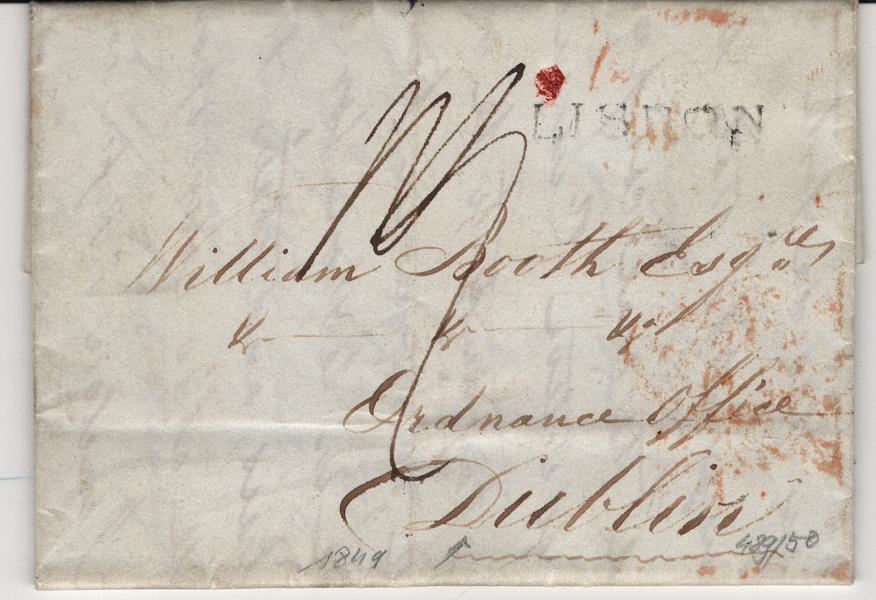 LISBON
William Booth Esqre
&c &c &c
Ordnance Office
Dublin
1849 489/50